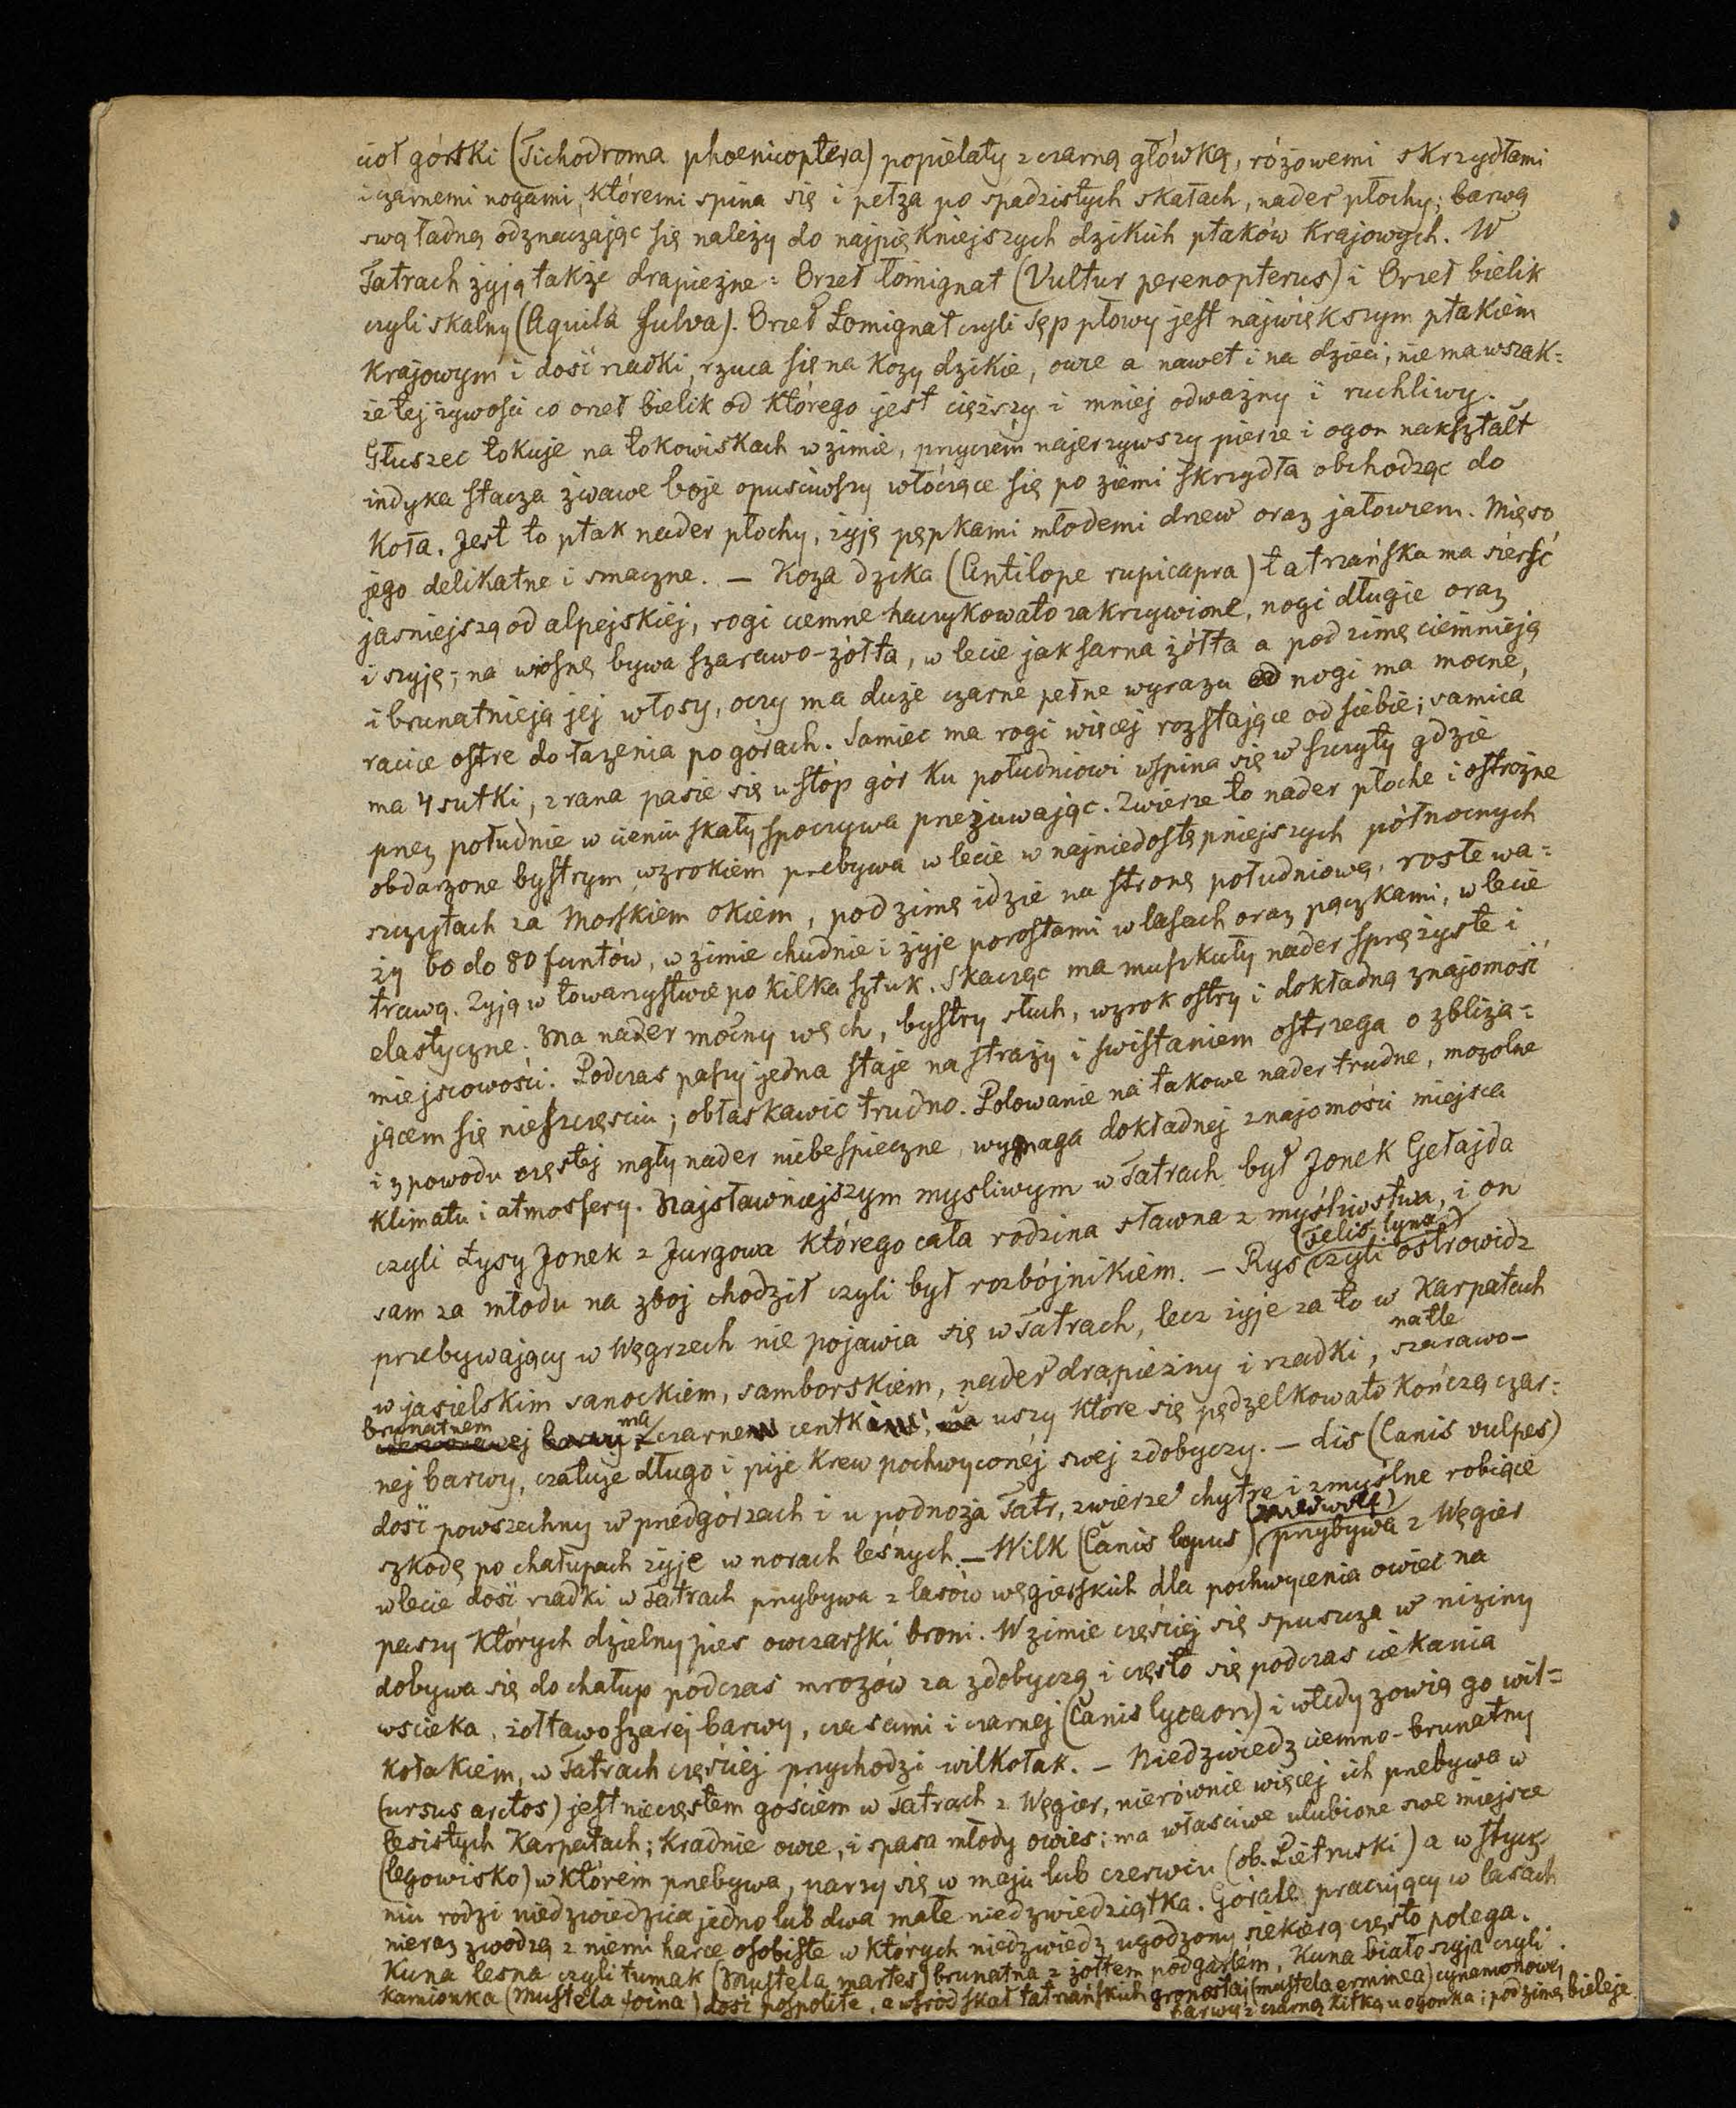 cioł górski (Tichodroma phoenicoptera) popielaty z czarną główką, różowemi skrzydłami
i czarnemi nogami, któremi spina się i pełza po spadzistych skałach, nader płochy; barwą
swą ładną odznaczając się należy do najpiękniejszych dzikich ptaków krajowych. W
Tatrach żyją także drapieżne: Orzeł łomignat (Vultur perenopterus) i Orzeł bielik
czyli skalny (Aquila fulva). Orzeł Łomignat czyli Sęp płowy jest największym ptakiem
krajowym i dość rzadki, rzuca się na kozy dzikie, owce a nawet i na dzieci, nie ma wszak=
że tej żywości co orzeł bielik od którego jest cięższy i mniej odważny i ruchliwy.
Głuszec tokuje na tokowiskach w zimie, przyczem najerzywszy pierze i ogon nakształt
indyka stacza żwawe boje opuściwszy włóczące się po ziemi skrzydła obchodząc do
koła. Jest to ptak nader płochy, żyje pępkami młodemi drzew oraz jałowcem. Mięso
jego delikatne i smaczne. — Koza dzika (Antilope rupicapra) tatrzańska ma sierść
jasniejszą od alpejskiej, rogi ciemne haczykowato zakrzywione, nogi długie oraz
i szyję; na wiosnę bywa szarawo-żółta, w lecie jak sarna żółta a pod zimę ciemnieją
i brunatnieją jej włosy, oczy ma duże czarne pełne wyrazu nogi ma mocne,
racice ostre do łażenia po górach. Samiec ma rogi więcej rozstające od siebie; samica
ma 4 sutki, z rana pasie się u stóp gór ku południowi wspina się w szczyty gdzie
przez południe w cieniu skały spoczywa przeżuwając. Zwierze to nader płoche i ostrożne
obdarzone bystrym wzrokiem przebywa w lecie w najniedostępniejszych północnych
szczytach za Morskiem Okiem, pod zimę idzie na stronę południową, rosłe wa=
ży 60 do 80 funtów, w zimie chudnie i żyje porostami w lasach oraz pączkami, w lecie
trawą. Żyją w towarzystwie po kilka sztuk. Skacząc ma muszkuły nader sprężyste i
elastyczne; Ma nader mocny węch, bystry słuch, wzrok ostry i dokładną znajomość
miejscowości. Podczas paszy jedna staje na straży i świstaniem ostrzega o zbliża=
jącem się nieszczęściu; obłaskawić trudno. Polowanie na takowe nader trudne, mozolne
i z powodu częstej mgły nader niebespieczne, wymaga dokładnej znajomości miejsca
klimatu i atmosfery. Najsławniejszym mysliwym w Tatrach był Jonek Gełajda
czyli Łysy Jonek z Jurgowa którego cała rodzina sławna z myśliwstwa, i on
sam za młodu na zboj chodził czyli był rozbójnikiem. — Ryś (Felis lynx) czyli ostrowidz
przebywający w Węgrzech nie pojawia się w Tatrach, lecz żyje za to w Karpatach
w jasielskim sanockiem, samborskiem, nader drapieżny i rzadki, na tle szarawo-
brunatnem ma czarne centki, uszy które się pędzelkowato kończą czar=
nej barwy, czatuje długo i pije krew pochwyconéj swej zdobyczy. — Lis (Canis vulpes)
dość powszechny w przedgórzach i u podnoża Tatr, zwierze chytre i zmyślne robiące
szkodę po chałupach żyje w norach leśnych. — Wilk (Canis lupus) przybywa z Węgier
w lecie dość rzadki w Tatrach przybywa z lasów węgierskich dla pochwycenia owiec na
paszy których dzielny pies owczarski broni. W zimie częściej się spuszcza w niziny
dobywa się do chałup podczas mrozów za zdobyczą i często się podczas ciekania
wscieka, żółtawoszarej barwy, czasami i czarnej (Canis lycaon) i wtedy zowią go wil=
kołakiem, w Tatrach częściej przychodzi wilkołak. — Niedzwiedz ciemno-brunatny
(ursus arctos) jest nieczęstem gościem w Tatrach z Węgier, nierównie więcej ich przebywa w
lesistych Karpatach; kradnie owce, i spasa młody owies; ma właściwe ulubione swe miejsce
(legowisko) w którem przebywa, parzy się w maju lub czerwcu (ob. Pietruski) a w stycz
niu rodzi niedzwiedzica jedno lub dwa małe niedzwiedziątka. Górale pracujący w lasach
nieraz zwodzą z niemi harce osobiste w których niedzwiedz ugodzony siekierą często polega.
Kuna lesna czyli tumak (Mustela martes) brunatna z żołtem podgarlem, Kuna białoszyja czyli
kamionka (Mustela foina) dość pospolite, a wśród skał tatrzańskich gronostaj (mustela erminea) cynamonowej
barwy z czarną kitką u ogonka; pod zimę bieleje.